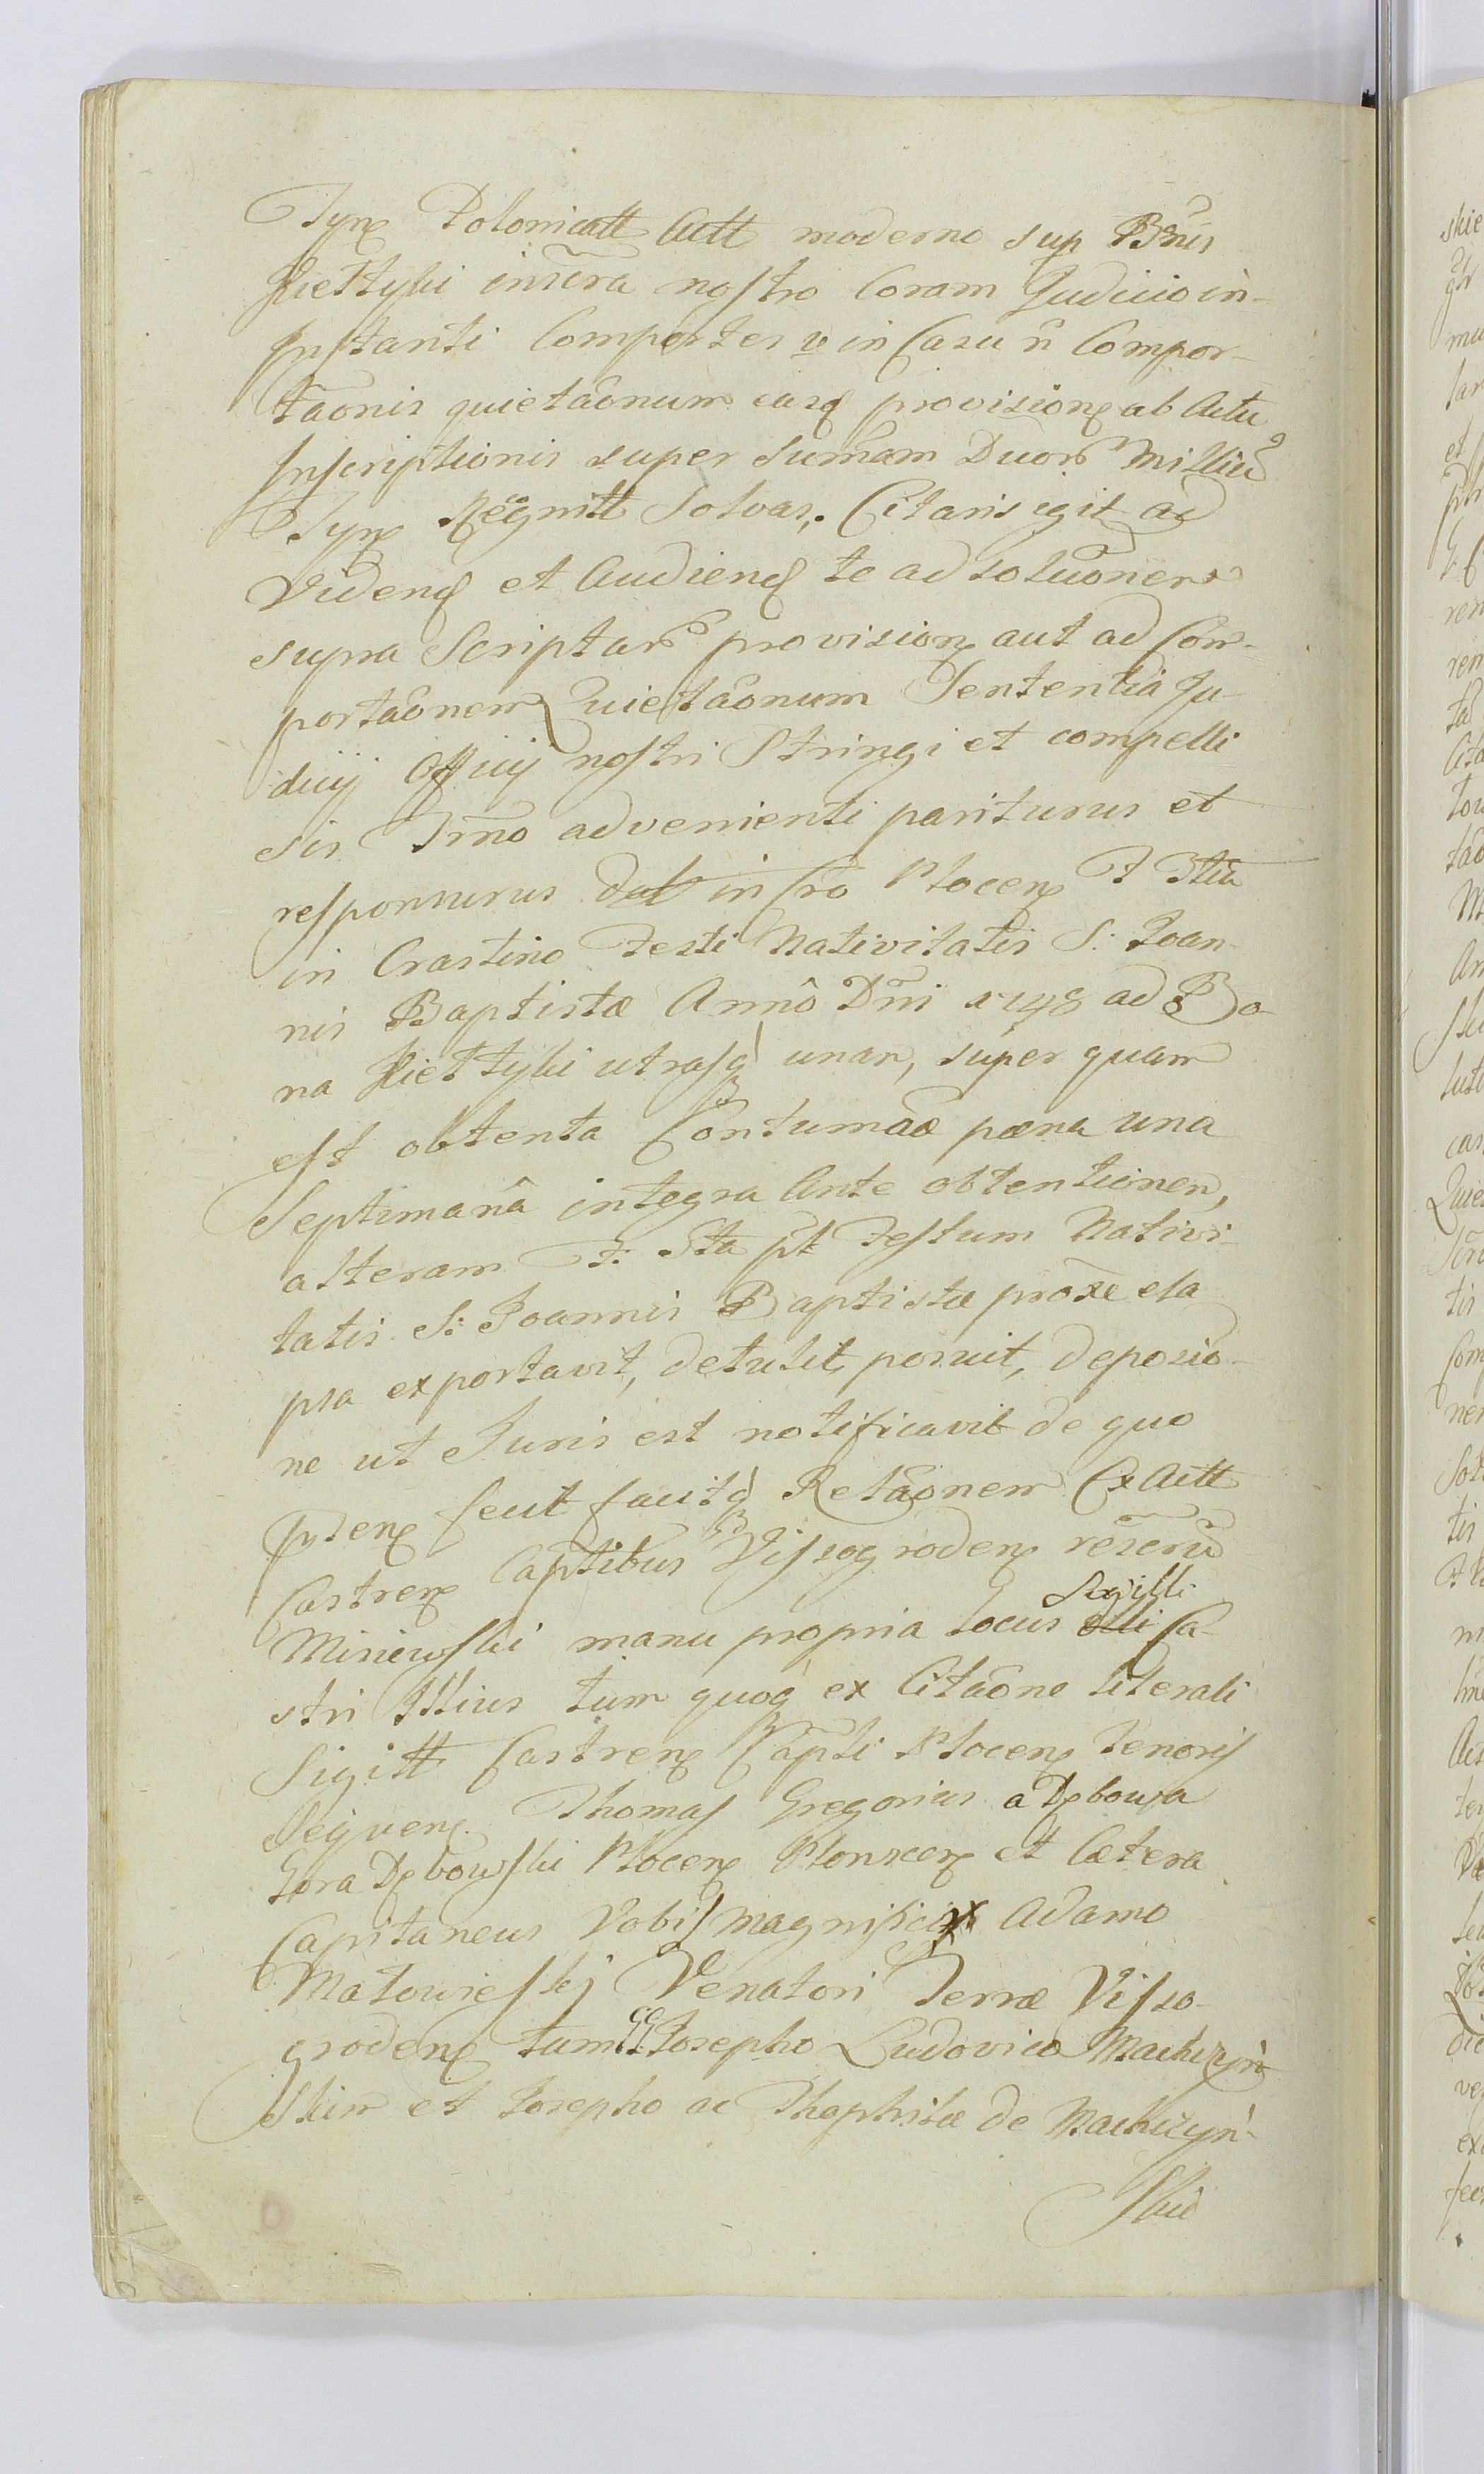 Polonicall Actt moderno sup Bnis
Kiełtyki inscra nostro Coram Judicio in-
stanti Comportes v in Casu n Compor-
taonis quietaonum easq provisione ab Actu
Inscriptionis super Summam Duor Milliu
Regnitt Solvas. Citaris igit ad
Videnq et Audienq te ad soluonem
supra Scriptar provision aut ad Com-
portaonem Quietaonum Sententia Ju-
dicij Officij nostri Stringi et compelli
sis Trmo advenienti pariturus et
responsurus Dat in Cro Plocen F Itia
in Crastino Festi Nativitatis S: Joan-
nis Baptistæ Anno Dni 1748 ad Bo-
na Kiełtyki utrasq unam, super quam
est obtenta Contumaæ pæna una
Septimana integra Ante obtentionem,
alteram F: Sta pt Festum Nativi-
tatis S: Joannis Baptistæ proxe ela
psa exportavit, detulit posuit, deposio-
ne ut Juris est notificavit de quo
psen fecit facitq Relaonem Ex Actt
Castren Captibus Vissogroden
Misiewski manu propria Locus Sigilli Ca-
stri Illius tum quoq ex Citaone literali
Sigill Castren Capli Plocen Tenoris
Seqven Thomas Gregorius a Dębowa
Gora Dębowski Plocen Plonscen et Cætera
Capitaneus Vobis Magnifico Adamo
Matowieskj Venatori Terræ Visso-
groden tum GG Josepho Ludovico Machczyn
skim et Josepho ac Theophilæ de Machczyn-
skie